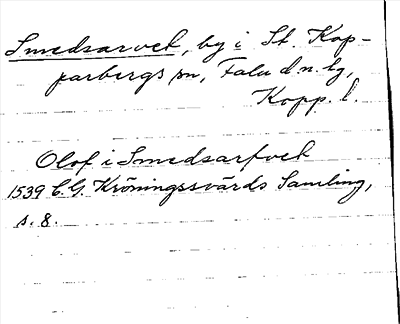 Smedsarvet, by i St. Kop-
parbergs sn, Falu d.n. hg,
Kopp. l.
Olof i Smedsarfvet
1539 C. G. Kröningssvärds Samling,
s. 8.